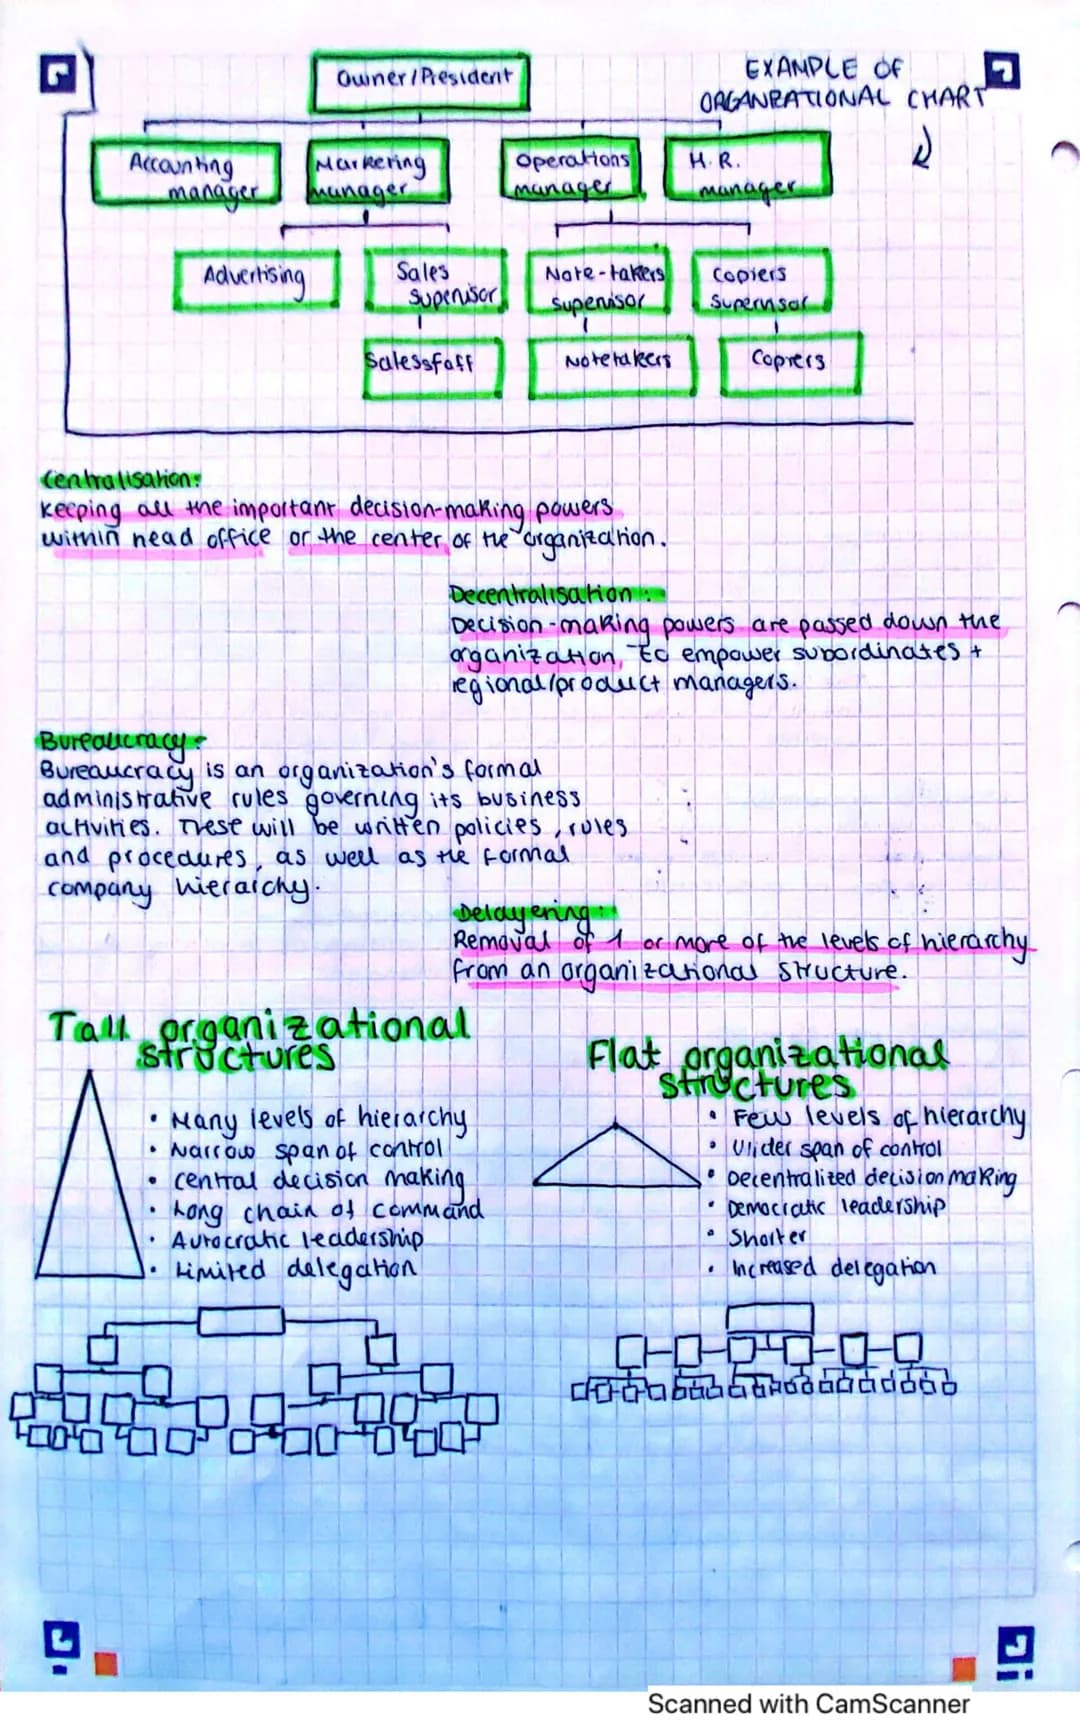 Owner/President
EXAMPLE OF
ORGANIZATIONAL CHART
Accounting
manager
Marketing
manager
Operations
manager
H.R.
manager
Advertising
Sales
supervisor
Note-takers
supervisor
Copiers
Supervisor
Salesstaff
Notetakers
Copiers
Centralisation:
keeping all the important decision-making powers
within head office or the center of the organization.
Decentralisation:
Decision-making powers are passed down the
organization, to empower subordinates +
regional/product managers.
Bureaucracy:
Bureaucracy is an organization's formal
administrative rules governing its business
activities. These will be written policies, rules
and procedures, as well as the formal
company hierarchy.
Delayering:
Removal of 1 or more of the levels of hierarchy
from an organizational structure.
Tall organizational
structures
• Many levels of hierarchy
• Narrow span of control
• central decision making
• Long chain of command
• Autocratic leadership
• Limited delegation
Flat organizational
structures
• Few levels of hierarchy
• Wider span of control
• Decentralized decision making
• Democratic leadership
• Shorter
• Increased delegation
Scanned with CamScanner